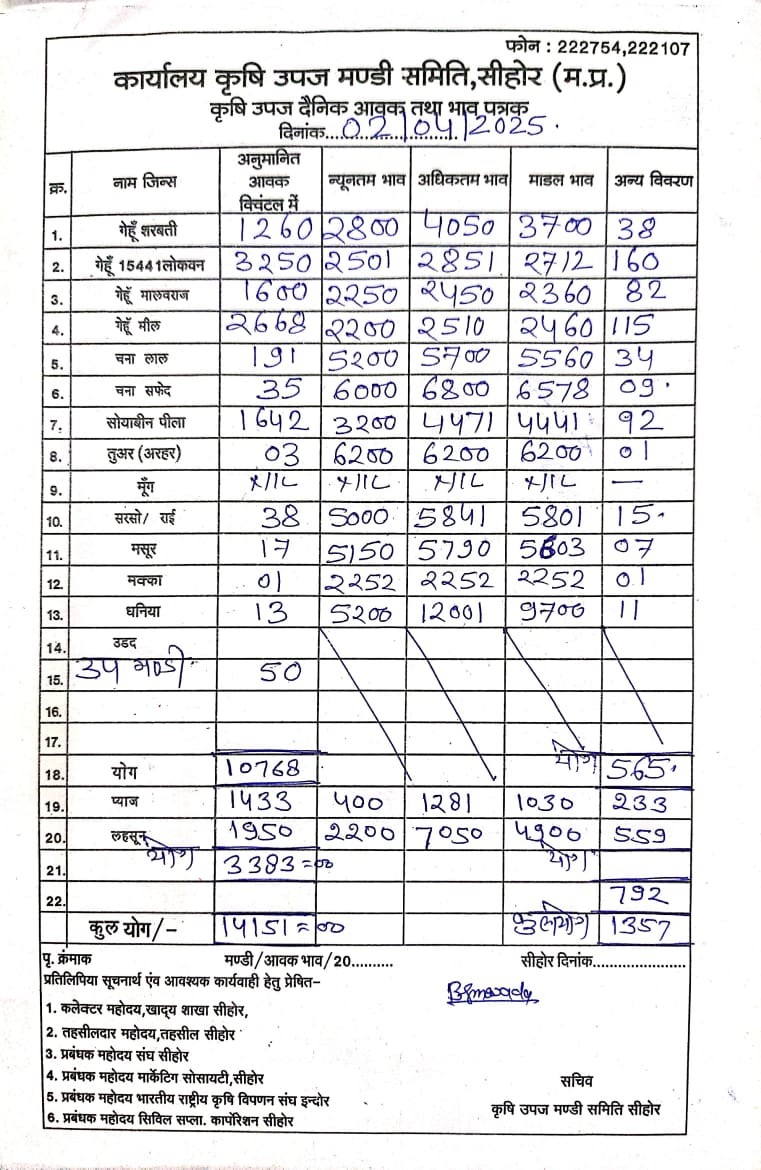 फोन : 222754,222107
कार्यालय कृषि उपज मण्डी समिति,सीहोर (म.प्र.)
कृषि उपज दैनिक आवक तथा भाव पत्रक
दिनांक...02/04/2025.
क्र. नाम जिन्स अनुमानित आवक विंचटल में न्यूनतम भाव अधिकतम भाव माडल भाव अन्य विवरण
1. गेहूँ शरबती 1260 2800 4050 3700 38
2. गेहूँ 15441लोकवन 3250 2501 2851 2712 160
3. गेहूँ मालवराज 1600 2250 2450 2360 82
4. गेहूँ मील 2668 2200 2510 2460 115
5. चना लाल 191 5200 5700 5560 34
6. चना सफेद 35 6000 6800 6578 09.
7. सोयाबीन पीला 1642 3200 4471 4441 92
8. तुअर (अरहर) 03 6200 6200 6200 01
9. मूँग NIL NIL NIL NIL —
10. सरसो/ राई 38 5000 5841 5801 15.
11. मसूर 17 5150 5790 5603 07
12. मक्का 01 2252 2252 2252 01
13. धनिया 13 5200 12001 9700 11
14. उडद
15. उप मण्डी 50
16.
17.
18. योग 10768 योग 565.
19. प्याज 1433 400 1281 1030 233
20. लहसून 1950 2200 7050 4900 559
21. योग 3383=00 योग
22. 792
कुल योग/- 14151=00 कुलयोग 1357
पृ. क्रंमाक मण्डी/आवक भाव/20.......... सीहोर दिनांक.......................
प्रतिलिपिया सूचनार्थ एंव आवश्यक कार्यवाही हेतु प्रेषित-
1. कलेक्टर महोदय,खाद्य शाखा सीहोर,
2. तहसीलदार महोदय,तहसील सीहोर
3. प्रबंधक महोदय संघ सीहोर
4. प्रबंधक महोदय मार्केटिग सोसायटी,सीहोर
5. प्रबंधक महोदय भारतीय राष्ट्रीय कृषि विपणन संघ इन्दोर
6. प्रबंधक महोदय सिविल सप्ला. कार्पोरेशन सीहोर
सचिव
कृषि उपज मण्डी समिति सीहोर